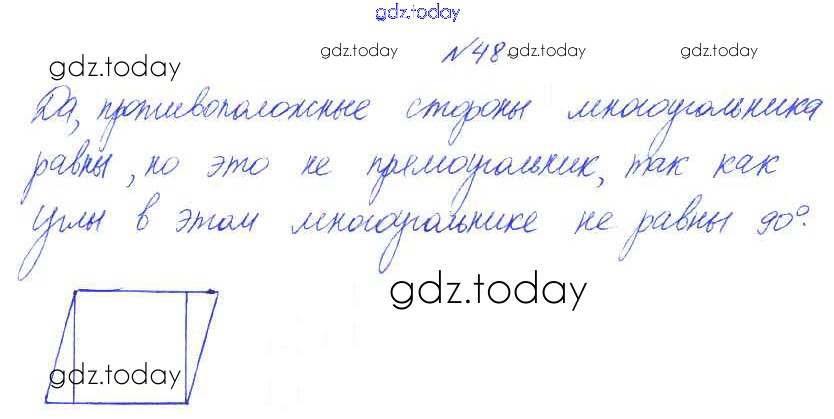 gdz.today
№48.
gdz.today gdz.today gdz.today
gdz.today
Да, противоположные стороны многоугольника
равны, но это не прямоугольник, так как
углы в этом многоугольнике не равны 90°.
gdz.today
gdz.today